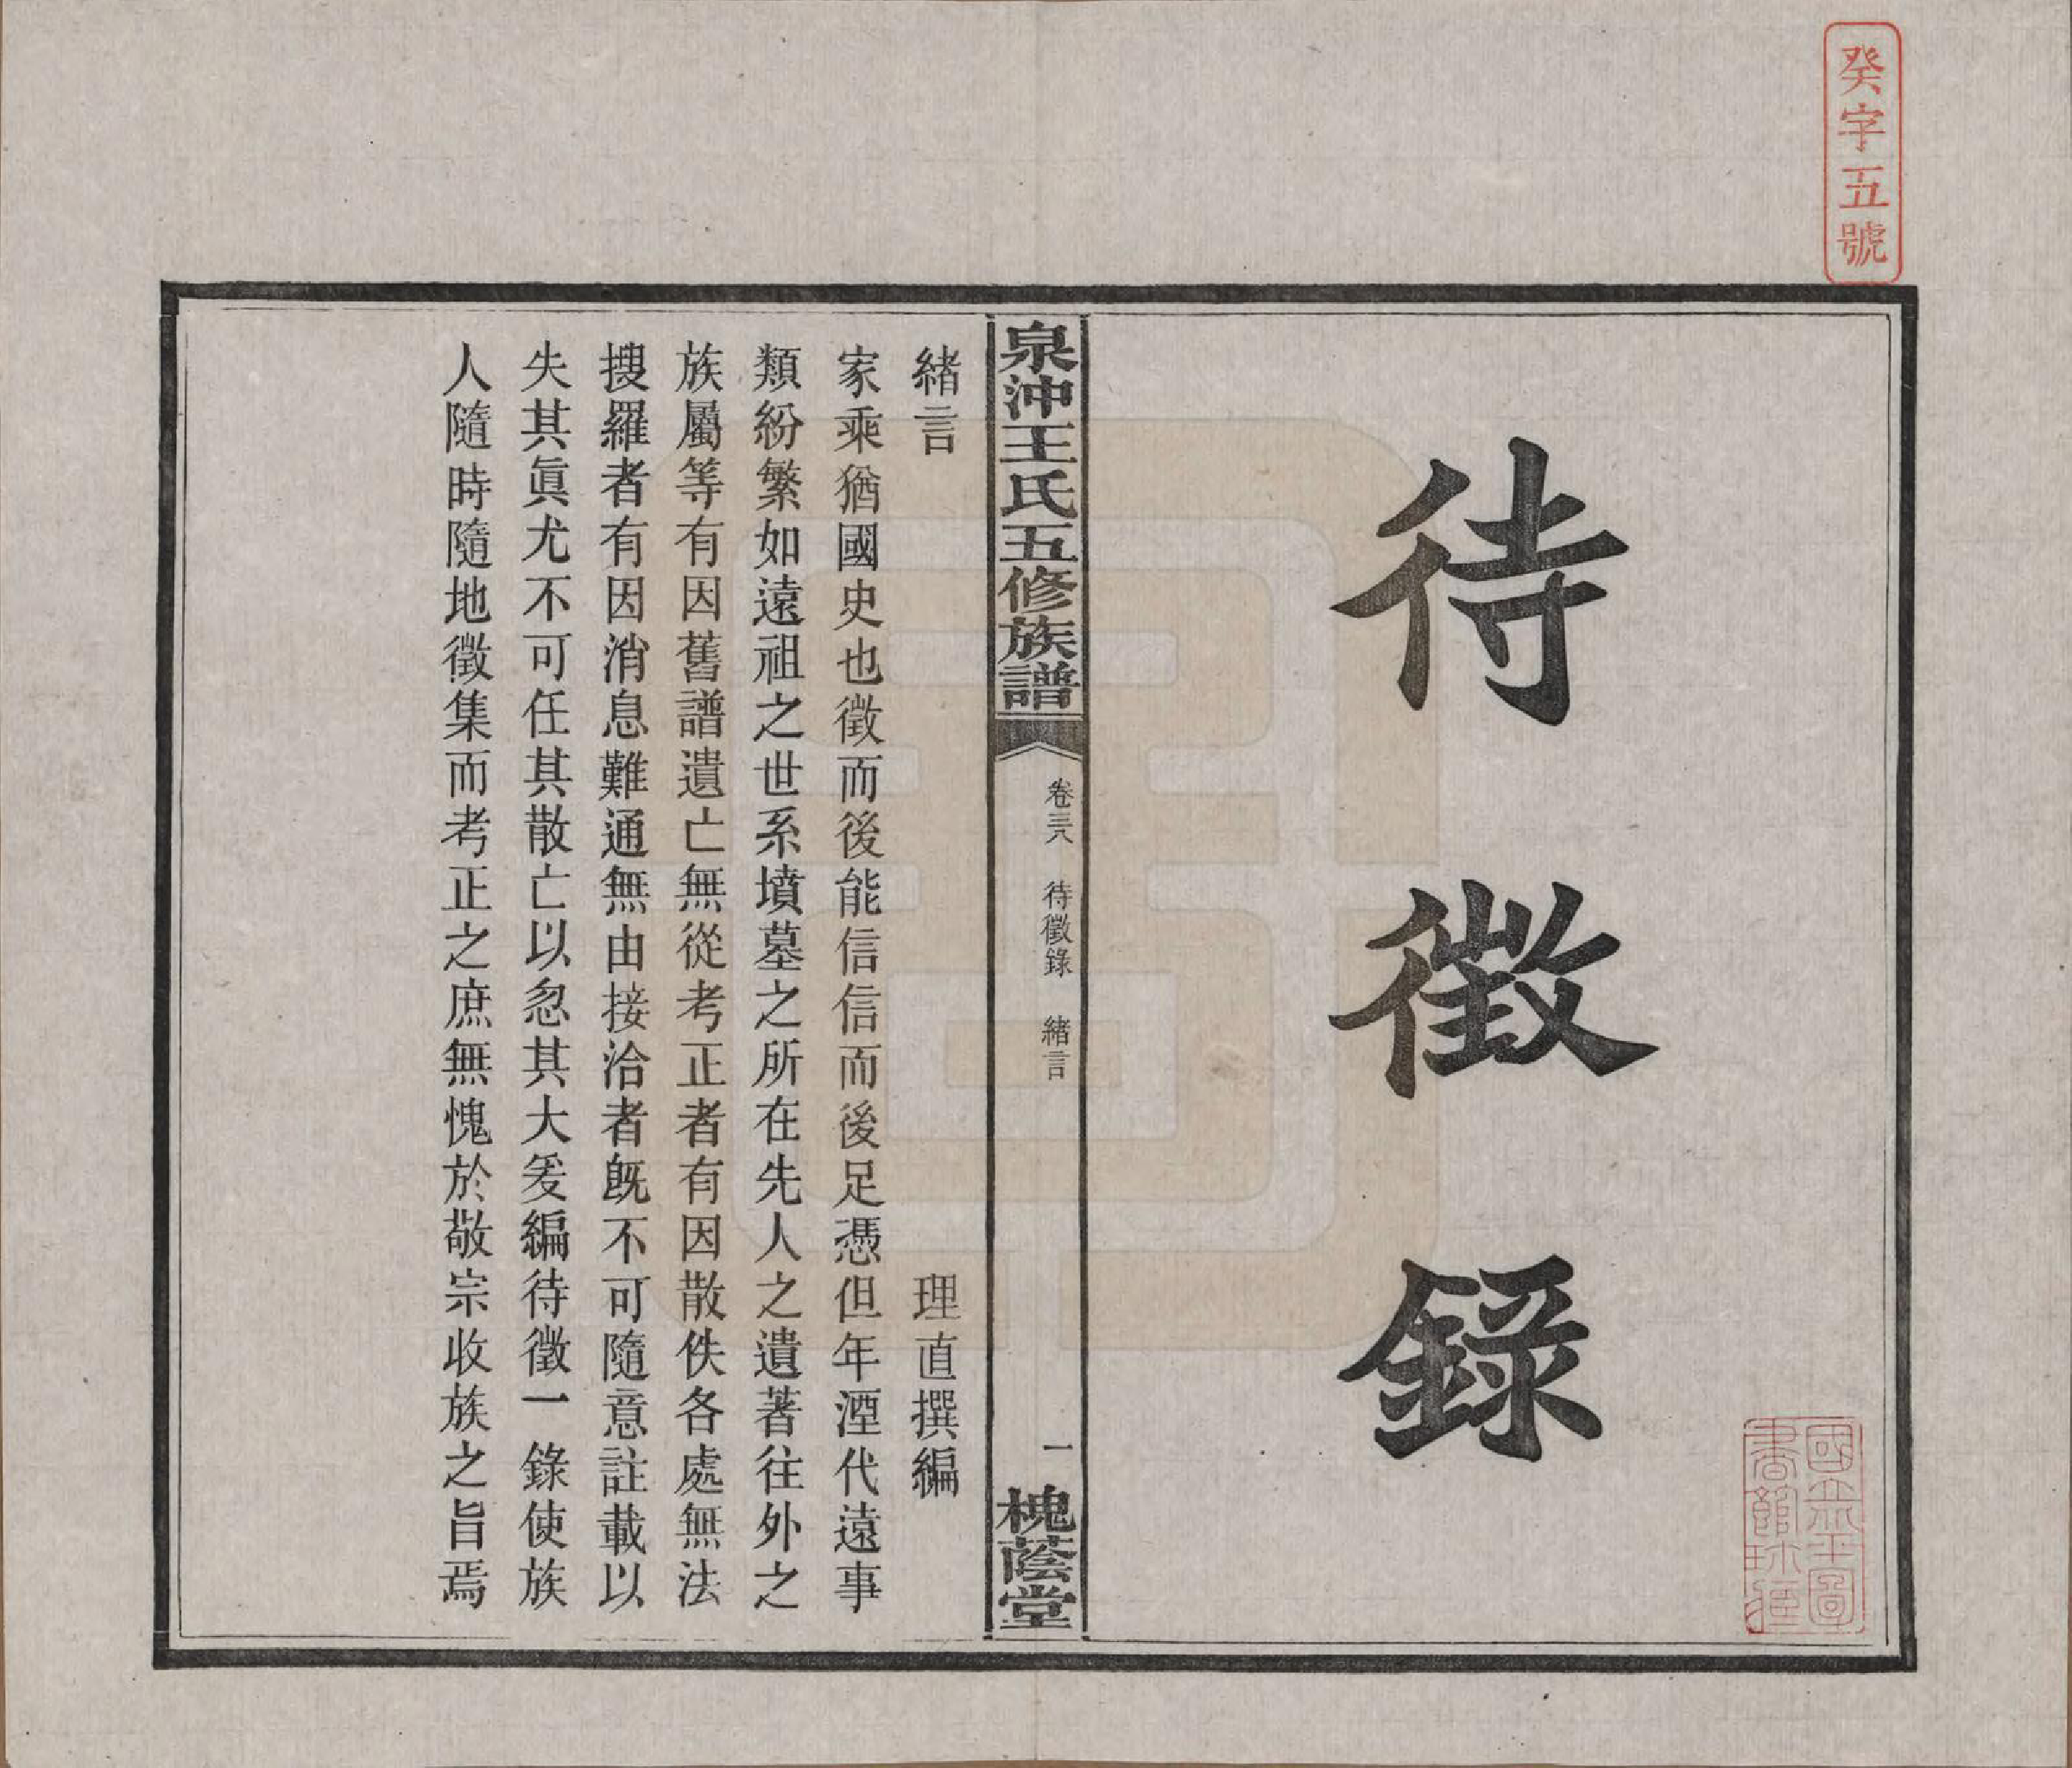 癸字五號
待徵錄
國立北平圖
書館珍藏
泉沖王氏五修族譜
卷三八 待徵錄 緒言
一
槐蔭堂
緒言 理直撰編
家乘猶國史也徵而後能信信而後足憑但年湮代遠事
類紛繁如遠祖之世系墳墓之所在先人之遺著往外之
族屬等有因舊譜遺亡無從考正者有因散佚各處無法
搜羅者有因消息難通無由接洽者既不可隨意註載以
失其眞尤不可任其散亡以忽其大爰編待徵一錄使族
人隨時隨地徵集而考正之庶無愧於敬宗收族之旨焉